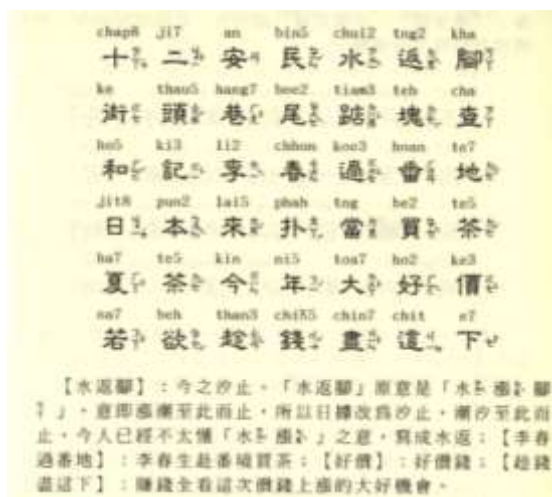 chap8 ji7 an bin5 chui2 tng2 kha
十二安民水返腳
ke thau5 hang7 boe2 tiam3 teh cha
街頭巷尾踮塊查
ho5 ki3 li2 chhun koe3 hoan te7
和記李春過番地
jit8 pun2 lai5 phah tng be2 te5
日本來扑當買茶
ha7 te5 kin ni5 toa7 ho2 ke3
夏茶今年大好價
na7 beh than3 chiN5 chin7 chit e7
若欲趁錢盡這下
【水返腳】:今之汐止。「水返腳」原意是「水漲腳
」,意即漲潮至此而止,所以日據改為汐止,潮汐至此而
止,今人已經不太懂「水漲」之意,寫成水返;【李春
過番地】:李春生赴番境買茶;【好價】:好價錢;【趁錢
盡這下】:賺錢全看這次價錢上漲的大好機會。